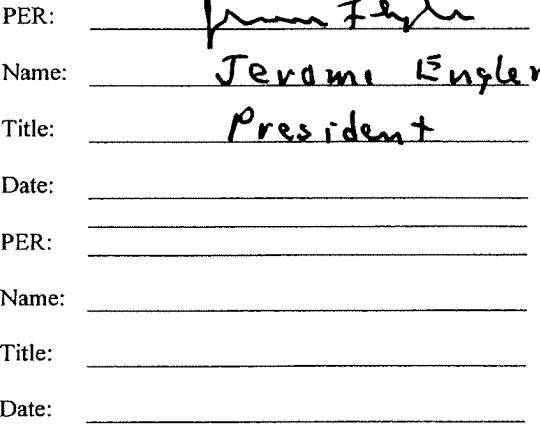 PER:
Name: Jerome Engler
Title: President
Date:
PER:
Name:
Title:
Date: